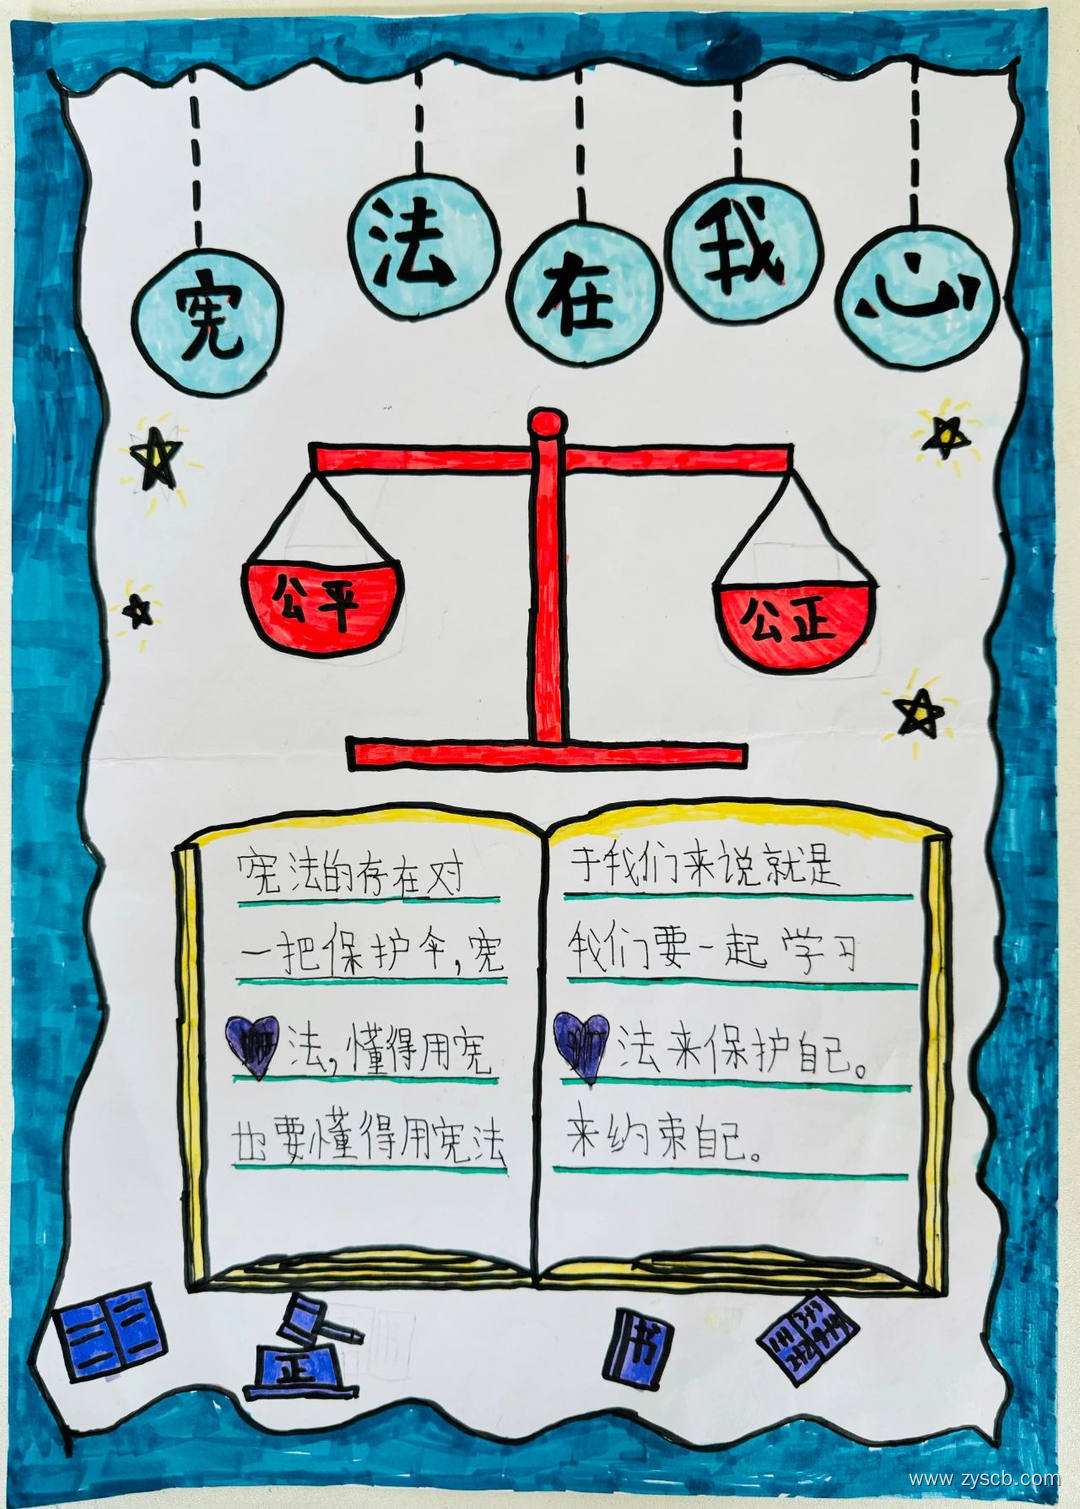 宪法在我心
公平
公正
宪法的存在对
于我们来说就是
一把保护伞,宪
我们要一起学习
法,懂得用宪
法来保护自己。
也要懂得用宪法
来约束自己。
正
书
www.zyscb.com